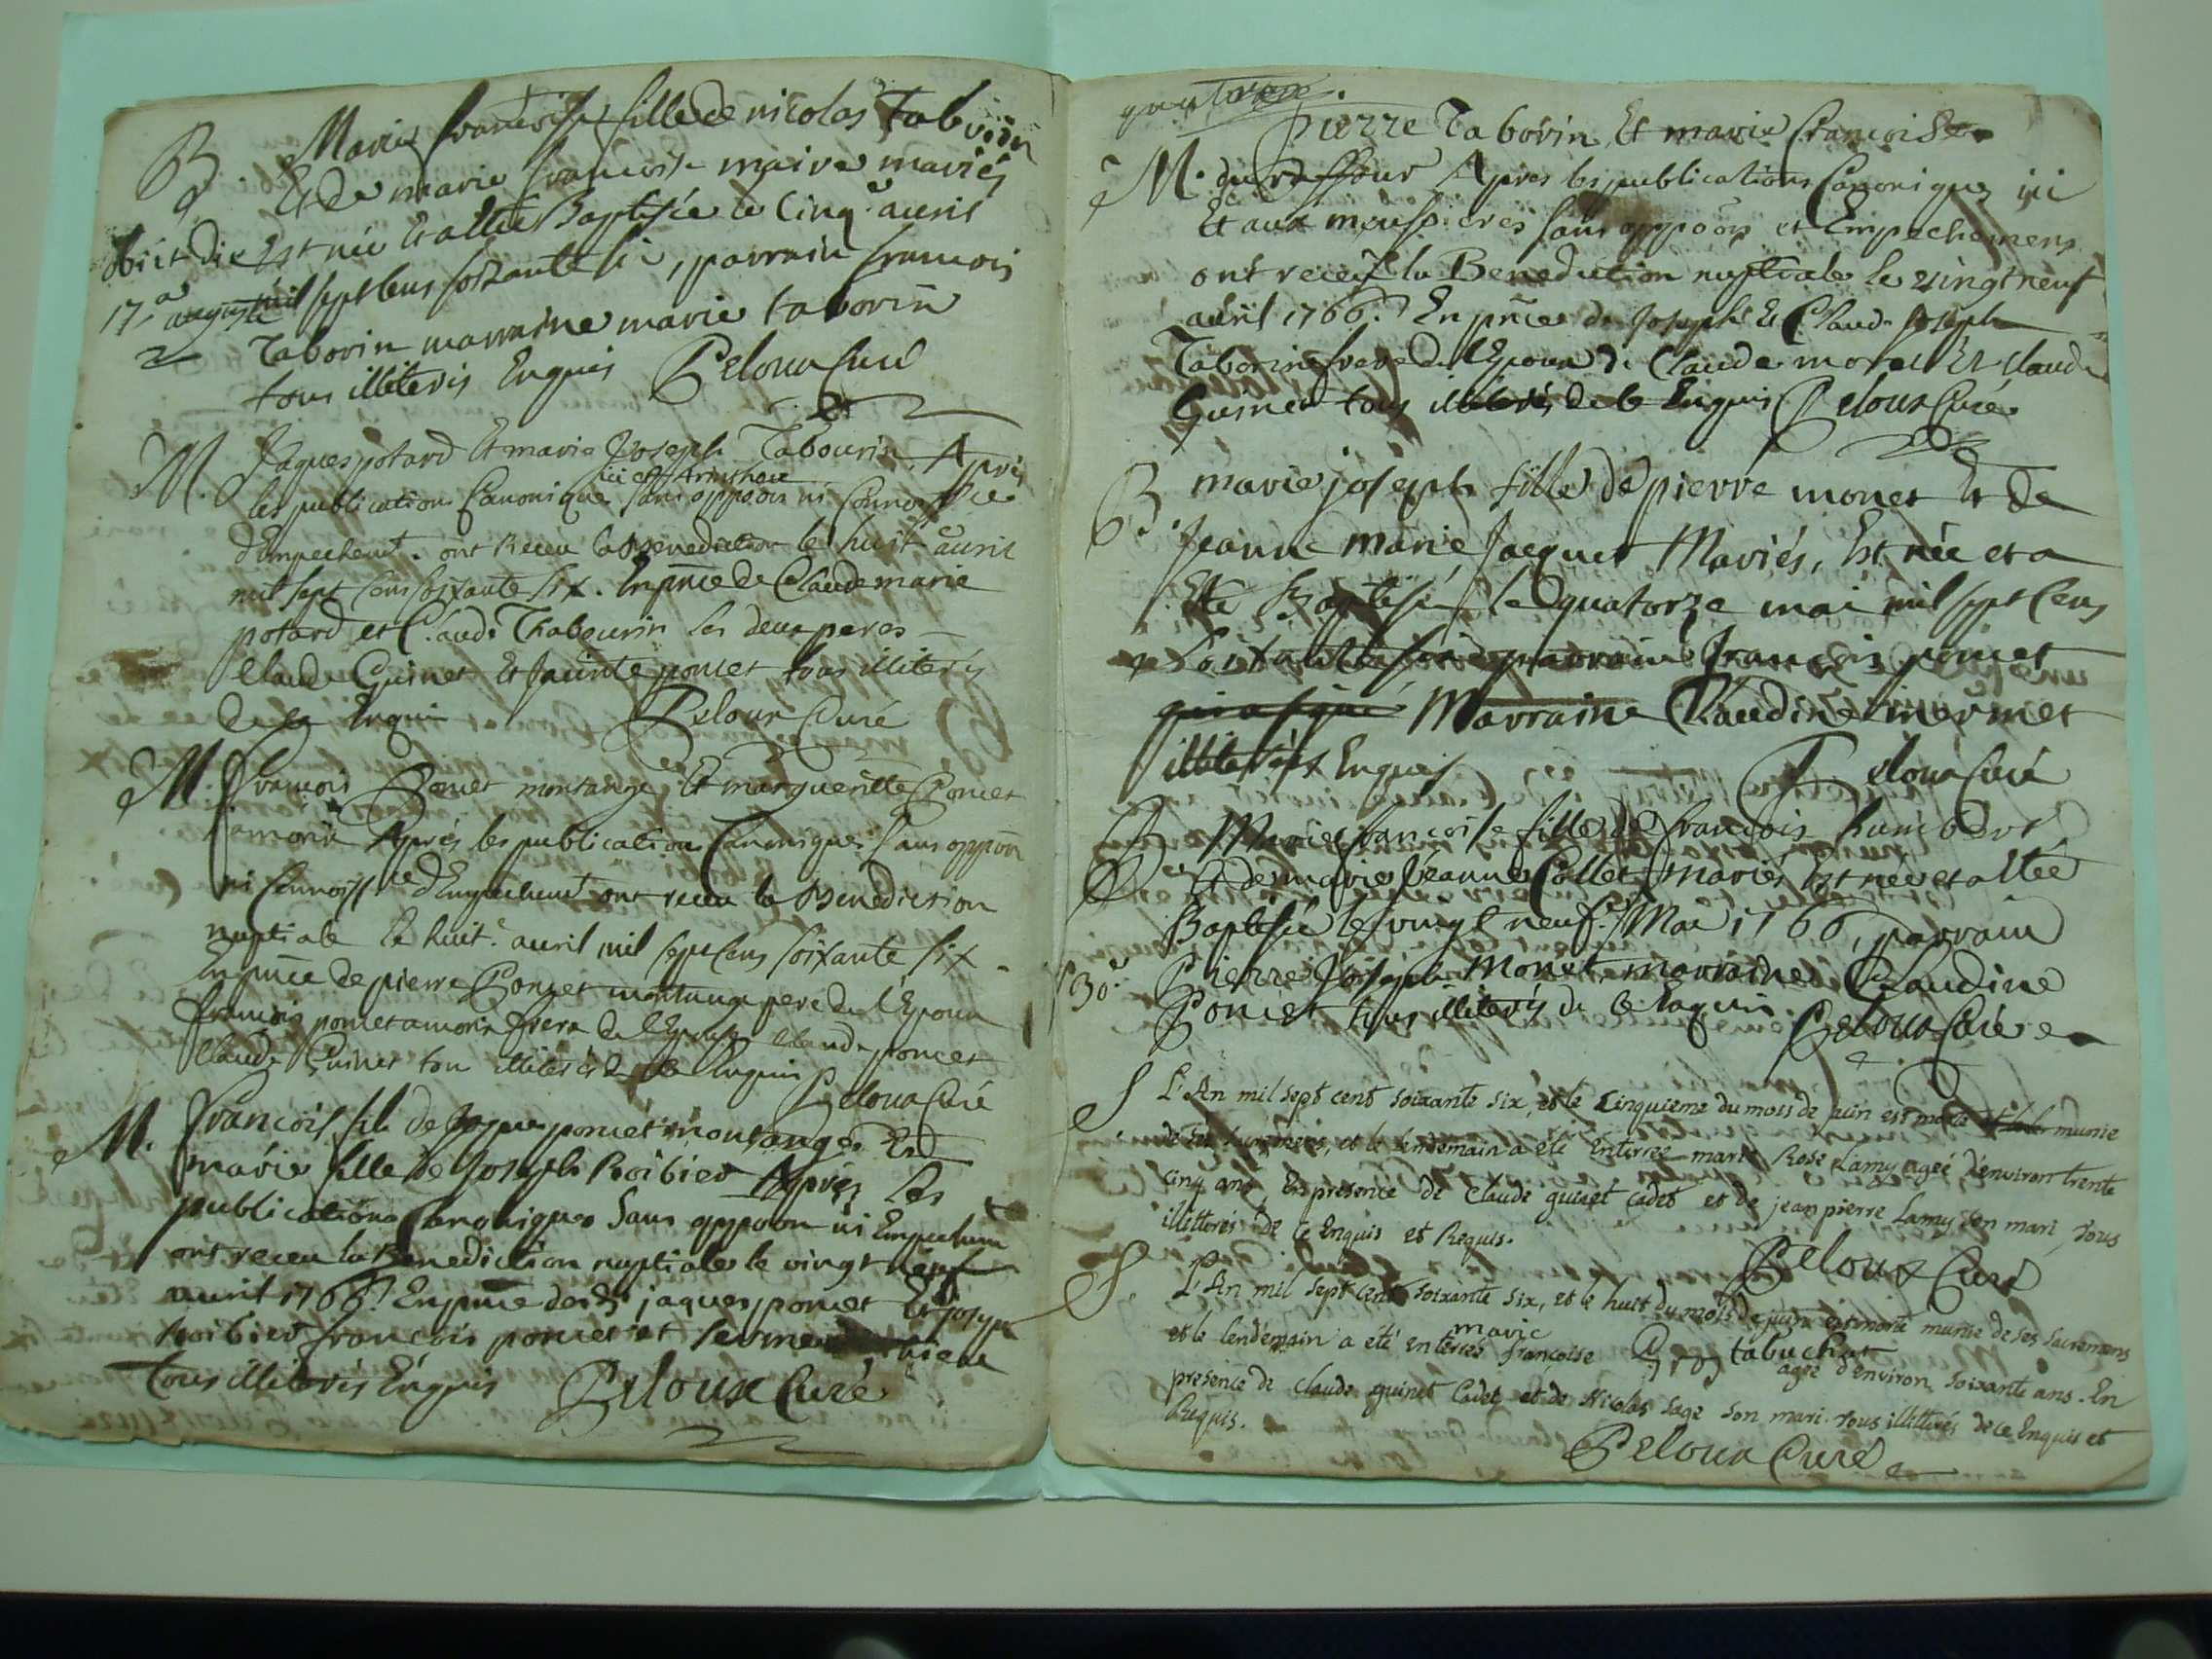 B. Marie francoise fille de nicolas Tabouin
Et de marie francoise maire mariés
obiit die Est née Et a été Baptisée le Cinq avril
17.a augusti mil sept cens soixante six, parrain francois
Taborin marraine marie taborin
tous illiteris Enquis Peloux Curé
M. Jaques potard Et marie Joseph Tabourin. Après
ici et
les publications Canoniques sans oppoon ni Connoissce
d'Empechemt. ont Receu la Benediction le huit avril
mil sept cens soixante six. En pnce de Claude marie
potard et Claude Thabourin les deux peres
Claude Guinet Et poncet tous illiterés
de ce Enquis Peloux Curé
M. francois Poncet montange Et margueritte Poncet
amorin Après les publications Canoniques sans oppoon
ni Connoissce d'Empechemt ont receu la Benediction
nuptiale le huit avril mil sept cens soixante six
En pnce de pierre Poncet montange pere de l'Epoux
francois poncet amorin frere de l'Epouse Claude poncet
Claude Guinet tous illiterés de ce Enquis
Peloux Curé
M. francois fils de Jaques poncet montange Et
marie fille de Joseph Roibier Après les
publications Canoniques sans oppoon ni Empechem
ont receu la Benediction nuptiale le vingt neuf
avril 1766. En pnce desd. jaques poncet Et joseph
Roibier francois poncet et
Tous illiterés Enquis Peloux Curé
quatorze.
Pierre Taborin Et marie francoise
M. duraffour Apres les publications Canoniques ici
Et aux moussieres sans oppoons et Empechemens
ont receu la Benediction nuptiale le vingt neuf
avril 1766. En pnce de Joseph Et Claude Joseph
Taborin frere de l'Epoux de Claude morel Et Claude
Guinet tous illiterés de ce Enquis Peloux Curé
B. marie joseph fille de pierre monet Et de
Jeanne Marie Jacquet Mariés, Est née et a
Eté Baptisée le quatorze mai mil sept cens
soixante six parrain francois poncet
qui a signé Marraine Claudine mermet
illiterés Enquis Peloux Curé
B. Marie francoise fille de francois humbert
Et de marie Jeanne Collet Mariés Est née et a étée
Baptisée le vingt neuf Mai 1766, parrain
Pierre Joseph Monet marraine Claudine
Poncet tous illiterés de ce Enquis
Peloux Curé
S L'An mil sept cent soixante six, et le Cinquieme du mois de juin est morte munie
de ses Sacremens, et le lendemain a été Enterrée marie Rose Lamy agée d'environ trente
cinq ans, En presence de Claude guinet cadet et de jean pierre Lamy son mari, tous
illitterés de ce Enquis et Requis.
Peloux Curé
S. L'An mil sept cent soixante six, et le huit du mois de juin est morte munie de ses Sacremens
et le lendemain a été enterrée marie francoise tabuchat agée d'environ soixante ans. En
presence de Claude guinet Cadet et de Nicolas Sage son mari. tous illitterés de ce Enquis et
Requis.
Peloux Curé